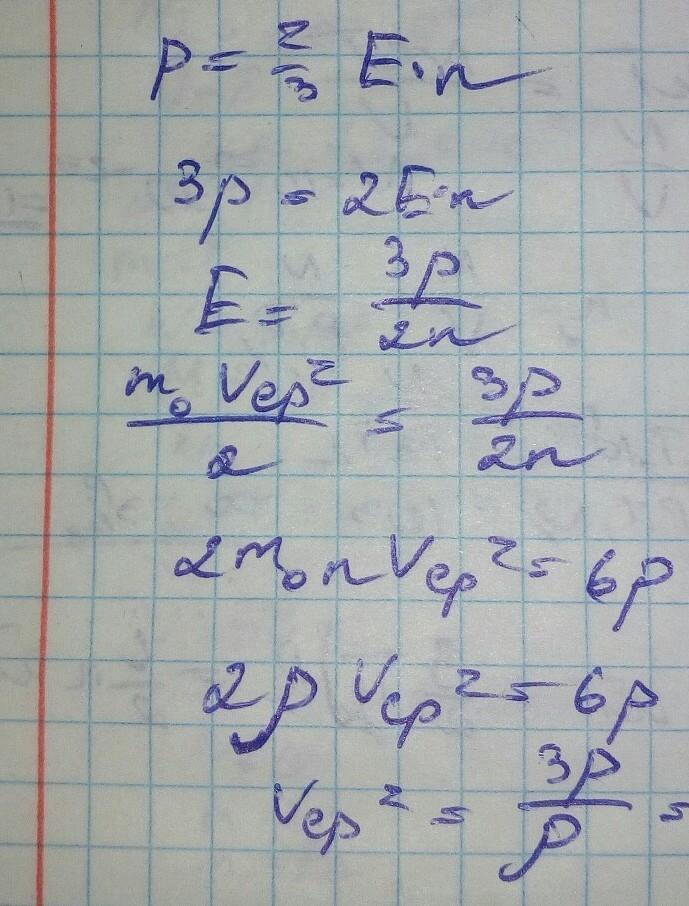 p = 2/3 E·n
3p = 2E·n
E = 3p/2n
m₀ Vср²/2 = 3p/2n
2m₀nVср² = 6p
2ρ Vср² = 6p
Vср² = 3p/ρ =